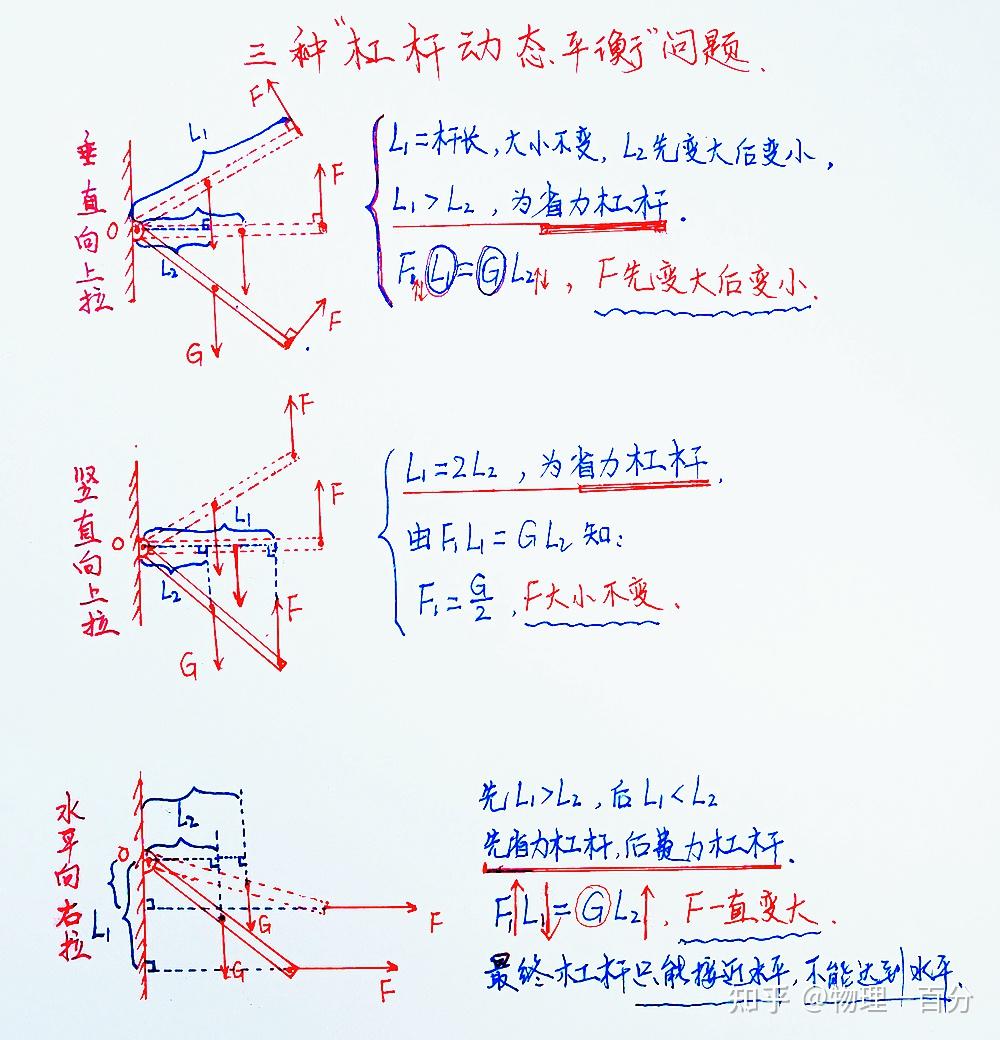 三种"杠杆动态平衡"问题.
垂直向上拉
L₁
F
F
O
L₂
G
F
L₁=杆长,大小不变,L₂先变大后变小,
L₁>L₂,为省力杠杆.
F₁L₁=GL₂,F先变大后变小.
竖直向上拉
F
F
L₁
O
L₂
F
G
L₁=2L₂,为省力杠杆.
由F₁L₁=GL₂知:
F₁=G/2,F大小不变.
水平向右拉
L₂
O
L₁
G
F
G
F
先L₁>L₂,后L₁<L₂
先省力杠杆,后费力杠杆.
F₁↑L₁↓=GL₂↑,F一直变大.
最终杠杆只能接近水平,不能达到水平.
知乎 @物理一百分